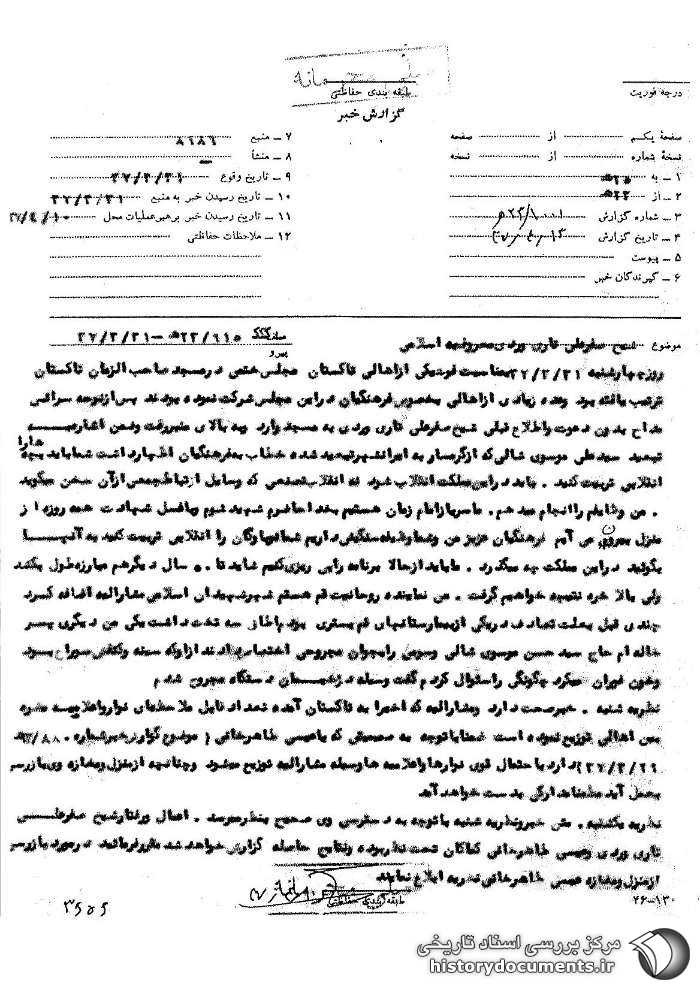 محرمانه
طبقه بندی حفاظتی
گزارش خبر
درجه فوریت
صفحه یکم از صفحه
نسخهٔ شماره از نسخه
۱ ـ به
۲ ـ از
۳ ـ شماره گزارش
۴ ـ تاریخ گزارش
۵ ـ پیوست
۶ ـ گیرندگان خبر
۷ ـ منبع ۸۱۸۶
۸ ـ منشأ
۹ ـ تاریخ وقوع ۳۷/۳/۳۱
۱۰ ـ تاریخ رسیدن خبر به منبع ۳۷/۳/۳۱
۱۱ ـ تاریخ رسیدن خبر برهبرعملیات محل
۱۲ ـ ملاحظات حفاظتی
موضوع شیخ صفرعلی تاری وردی معروف به اسلامی
پیرو
روز چهارشنبه ۳۷/۳/۳۱ بمناسبت فوت یکی از اهالی تاکستان مجلس ختمی در مسجد صاحب الزمان تاکستان
ترتیب یافته بود وعده زیادی از اهالی بخصوص فرهنگیان در این مجلس شرکت نموده بودند پس از نوحه سرائی
مداح بدون دعوت واطلاع قبلی شیخ صفرعلی تاری وردی به مسجد وارد وبه بالای منبر رفت وضمن اشاره به
تبعید سید علی موسوی شالی که از گرمسار به ایرانشهر تبعید شده خطاب به فرهنگیان اظهار داشت شما باید بچه ها را
انقلابی تربیت کنید . باید در این مملکت انقلاب شود نه انقلاب صنعتی که وسایل ارتباط جمعی از آن سخن میگوید
. من وظایفم را انجام میدهم . ما سرباز امام زمان هستیم بخدا حاضرم شهید شوم وباغسل شهادت همه روزه از
منزل بیرون می آیم فرهنگیان عزیز من وشما وظیفه سنگینی داریم شما نوباوگان را انقلابی تربیت کنید به آنها
بگوئید در این مملکت چه میگذرد . ما باید از حالا برنامه رایی ریزی کنیم شاید تا ۵۰ سال دیگر هم مبارزه طول بکشد
ولی بالا خره نتیجه خواهیم گرفت . من نماینده روحانیت قم هستم نه شهیدان اسلامی مشارالیه اضافه کرد
چندی قبل بعلت تصادف در یکی از بیمارستانهای قم بستری بودم اطاق سه تخت داشت یکی من دیگری پسر
خاله ام حاج سید حسن موسوی شالی وسومی را بجوان مجروحی اختصاص دادند از او که سینه وکتفش سوراخ بود
وخون فوران میکرد چگونگی را سئوال کردم گفت وسیله دژخیمان دستگاه مجروح شدم
نظریه شنبه . خبر صحت دارد ومشارالیه که اخیرا به تاکستان آمده تعداد قابل ملاحظه ای نوار واعلامیه مضره
بین اهالی توزیع نموده است ضمنا با توجه به صمیمیتی که با عیسی طاهرخانی ( موضوع گزارش خبر شماره
دارد با حتمال قوی نوارها واعلامیه ها وسیله مشارالیه توزیع میشود وچنانچه از منزل ومغازه وی بازرسی
بعمل آید مطمئنا مدارکی بدست خواهد آمد
نظریه یکشنبه . متن خبر ونظریه شنبه با توجه به دسترسی وی صحیح بنظر میرسد . اعمال ورفتار شیخ صفرعلی
تاری وردی وعیسی طاهرخانی کماکان تحت نظر بوده ونتایج حاصله گزارش خواهد شد مقرر فرمائید در مورد بازرسی
از منزل ومغازه عیسی طاهرخانی نظریه ابلاغ نمایند
طبقه بندی حفاظتی
۲۶-۱۳۰
۳۶۵۶
مرکز بررسی اسناد تاریخی
historydocuments.ir